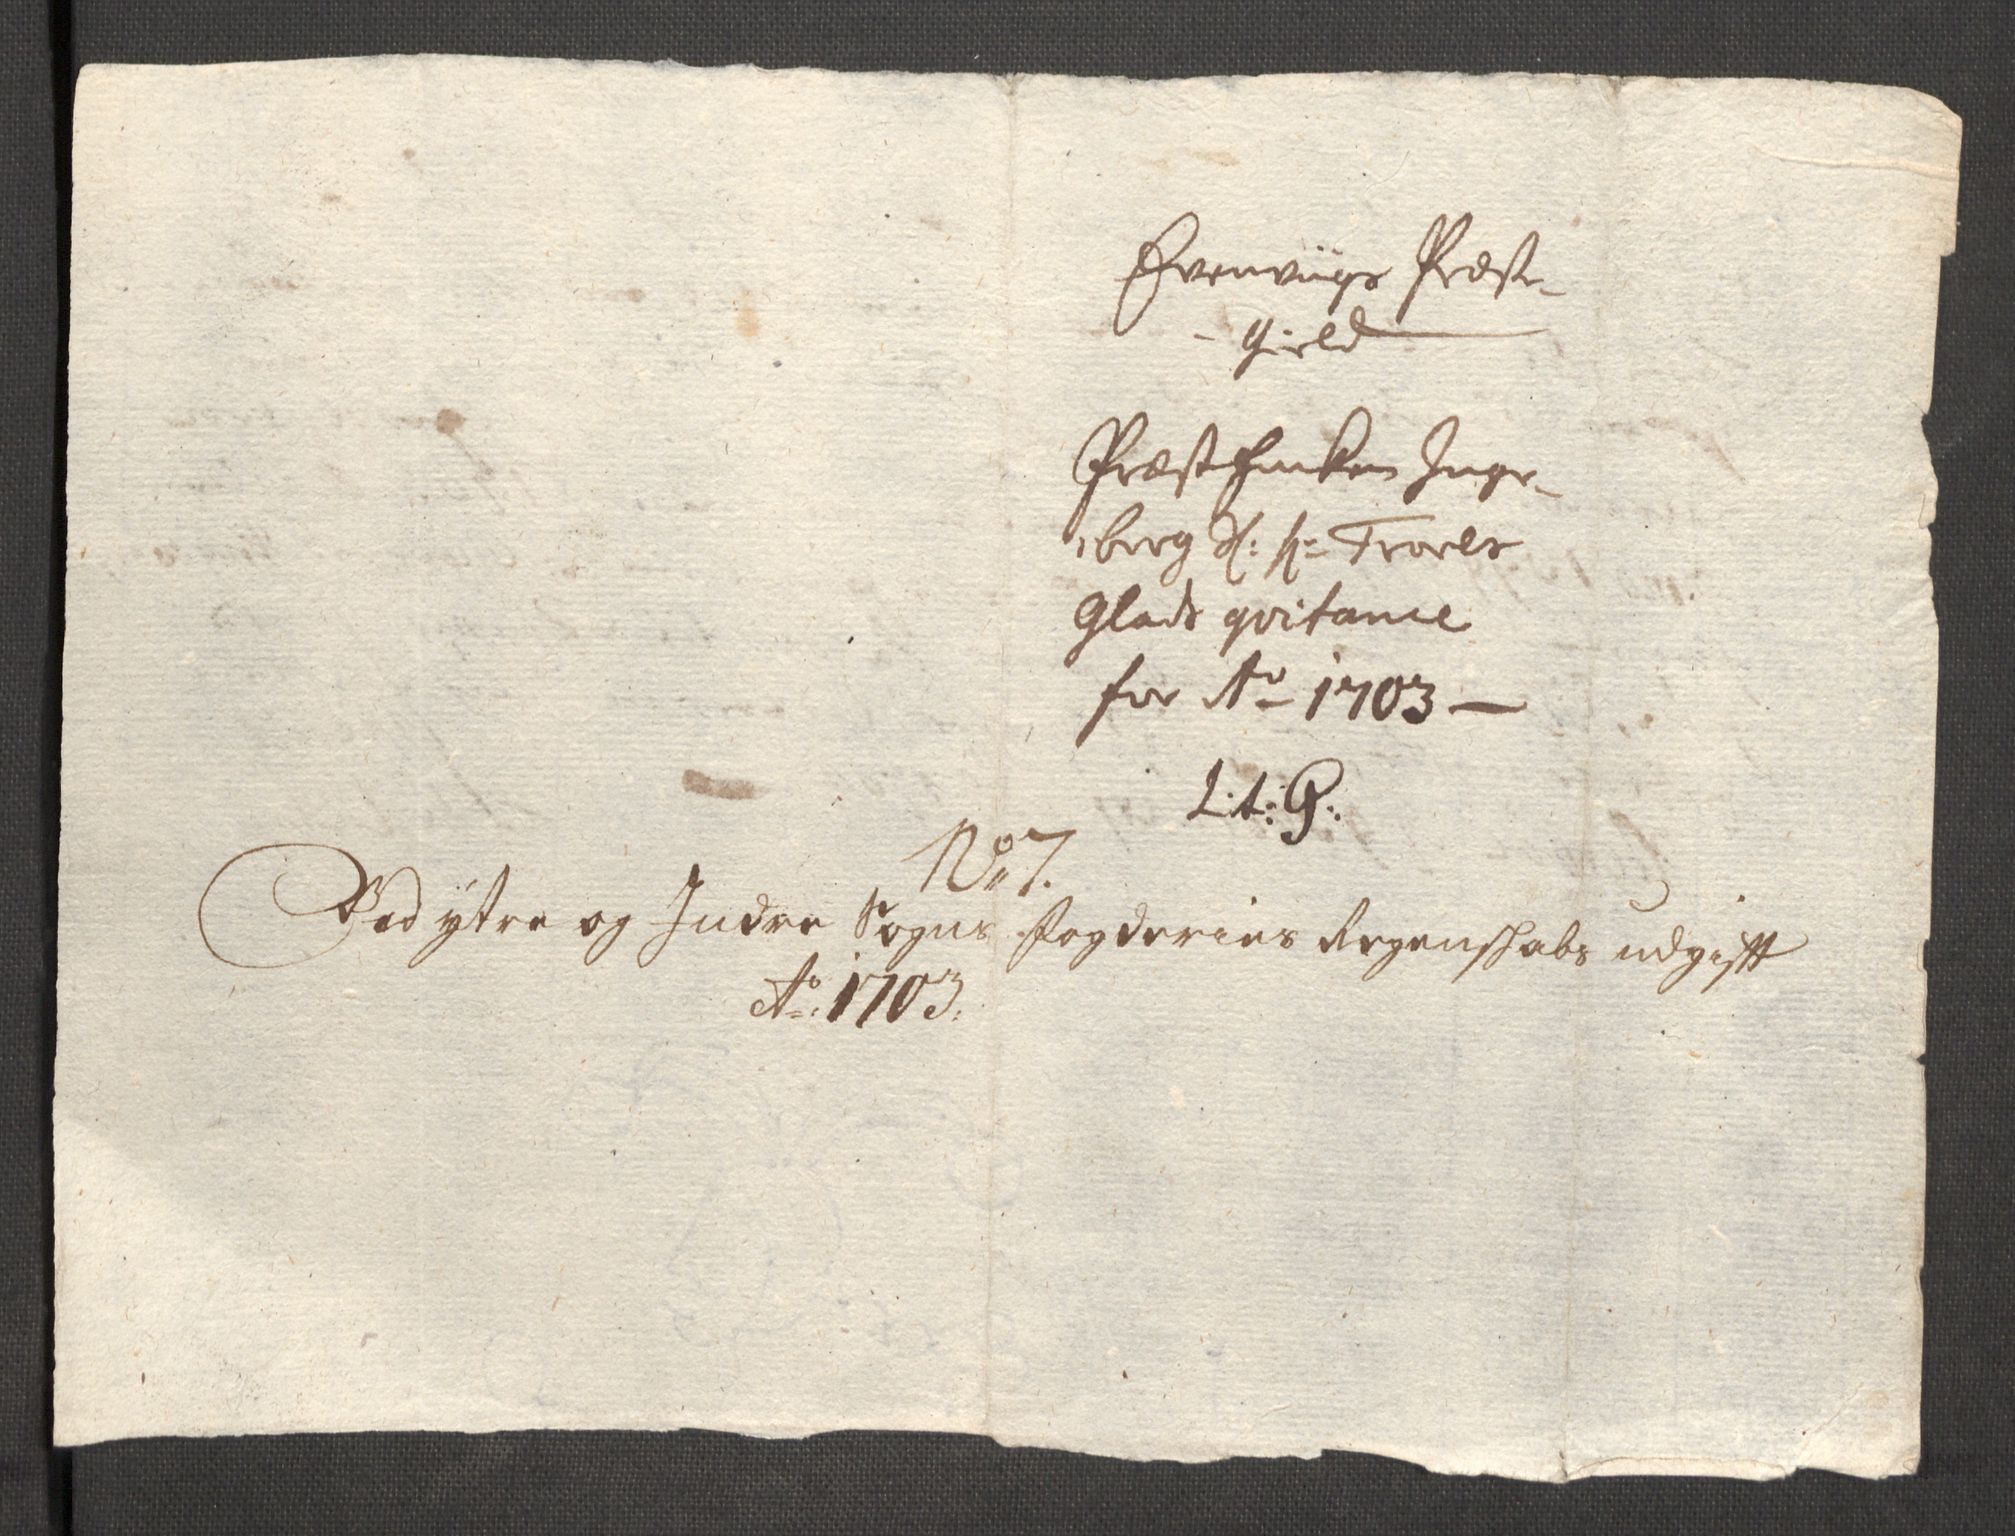 Evenviigs Præste-
- gield
Præst Enken Inge-
berg Sl: hr Troels
Glads qvitance
for Ao 1703 -
Lit: G:
No 7.
Ved ÿtre og Indre Sogns fogderies Regenskabs udgifft
Ao: 1703.